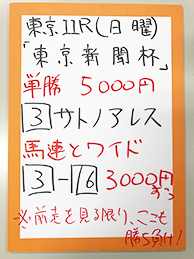 東京11R(日曜)
「東京新聞杯」
単勝 5000円
3 サトノアレス
馬連とワイド
3-16 3000円
ずつ
※前走を見る限り、ここも
勝ち負け!